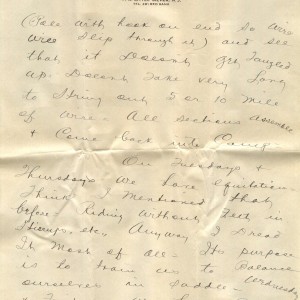 (Pole with hook on end so wire
will slip through it) and see
that it Doesnt get Tangled
up. Doesnt Take very Long
to string out 5 or 10 mile
of wire. All sections assemble
& Come back into Camp.
On Tuesdays &
Thursdays We have equitation
Think I Mentioned that
before. Riding Without feet in
Stirrups. Anyway I Dread
It Most of all. Its purpose
is to train us to Balance
ourselves in saddle. Wednesday